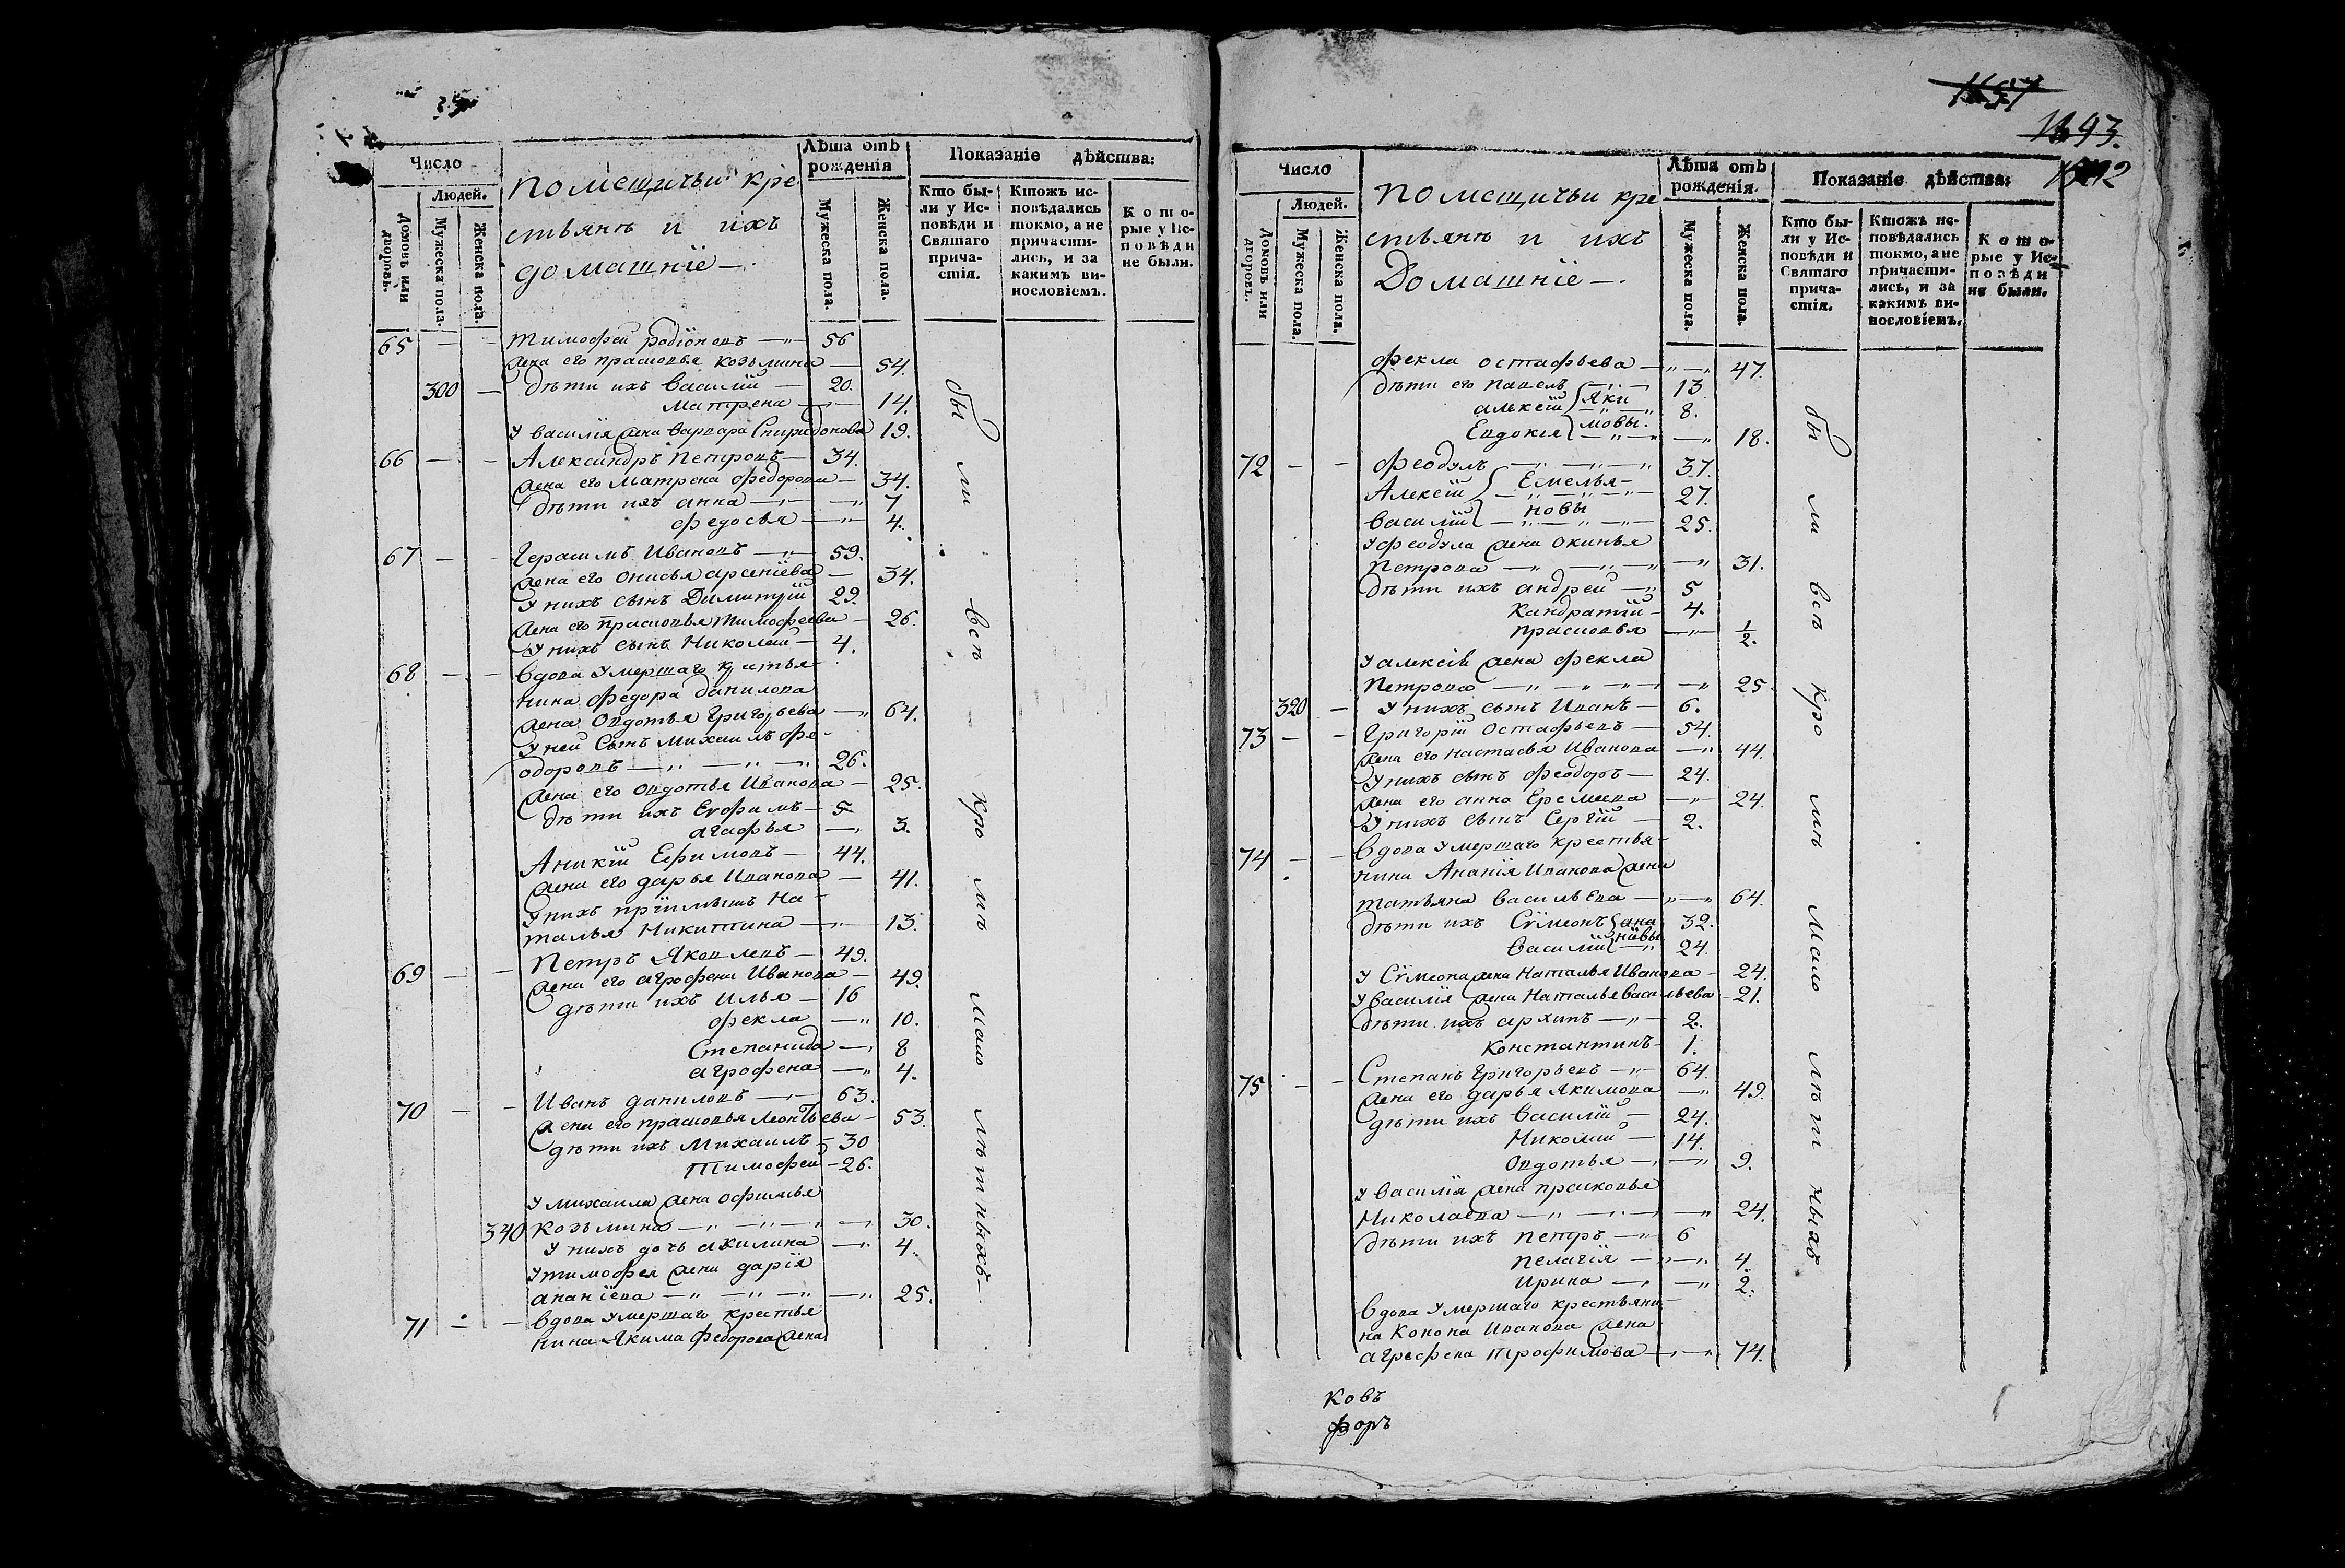 Число
Людей.
Домовъ или дворовъ.
Мужеска пола.
Женска пола.
помещичьи кре
стьянъ и ихъ
домашніе —
Лѣта отъ рожденія
Мужеска пола.
Женска пола.
Показаніе дѣйства:
Кто бы-
ли у Ис-
повѣди и
Святаго
прича-
стія.
Ктожъ ис-
повѣдались
токмо, а не
причасти-
лись, и за
какимъ ви-
нословіемъ.
Кото-
рые у Ис-
повѣди
не были.
65 — — Тимофей Родіоновъ — 56
жена его прасковья Козьмина — 54.
300 — дѣти ихъ Василій — 20.
матрена — 14.
у василія жена варвара Спиридонова 19.
66 — — Александръ Петровъ — 34.
жена его матрена федорова — 34.
дѣти ихъ анна — 7
федосья — 4.
67 — — Герасимъ Ивановъ — 59.
жена его онисья арсеніева — 34.
у нихъ сынъ Димитрій 29.
жена его прасковья Тимофеева — 26.
у нихъ сынъ Николай — 4.
68 — — вдова умершаго крстья-
нина федора данилова
жена овдотья григорьева — 64.
у ней сынъ михаилъ фе-
одоровъ — 26.
жена его овдотья Иванова — 25.
дѣти ихъ Ефимъ — 5
агафья — 3.
Аникій Ефимовъ — 44.
жена его дарья Иванова — 41.
у нихъ пріимышъ На-
талья Никитина — 13.
69 — — Петръ Яковлевъ — 49.
жена его агрофена Иванова — 49.
дѣти ихъ Илья — 16
фекла — 10.
Степанида — 8
агрофена — 4.
70 — — Иванъ даниловъ — 63.
жена его прасковья Леонтьева — 53.
дѣти ихъ Михаилъ — 30
Тимофей — 26.
у михаила жена офимья
340 Козьмина — 30.
у нихъ дочь акилина — 4.
у тимофея жена дарія
ананіева — 25.
71 — — вдова умершаго крестья
нина Якима федорова жена
бы ли всѣ кро мѣ мало лѣтныхъ —
1693.
Число
Людей.
Домовъ или дворовъ.
Мужеска пола.
Женска пола.
помещичьи кре
стьянъ и ихъ
Домашніе —
Лѣта отъ рожденія.
Мужеска пола.
Женска пола.
Показаніе дѣйства:
Кто бы-
ли у Ис-
повѣди и
Святаго
прича-
стія.
Ктожъ ис-
повѣдались
токмо, а не
причасти-
лись, и за
какимъ ви-
нословіемъ.
Кото-
рые у Ис-
повѣди
не были.
фекла остафьева — 47.
дѣти его павелъ — 13
алексій } Яки 8.
Евдокія } мовы. — 18.
72 — — феодулъ — 37.
Алексій } Емелья- 27.
василій } новы 25.
у феодула жена окинья
Петрова — 31.
дѣти ихъ андрей — 5
Кандратій — 4.
прасковья — 1/2.
у алексія жена фекла
Петрова — 25
320 — у нихъ сынъ Иванъ — 6.
73 — — Григорій Остафьевъ — 54.
жена его настасья Иванова — 44.
у нихъ сынъ феодоръ — 24.
жена его анна Еремеева — 24.
у нихъ сынъ Сергій — 2.
74 — — вдова умершаго крестья-
нина Ананія Иванова жена
татьяна васильева — 64.
дѣти ихъ Сѵмеонъ } ана 32.
Василій } ніевы 24.
у Сѵмеона жена Наталья Иванова — 24.
у василія жена Наталья васильева — 21.
дѣти ихъ архипъ — 2.
Константинъ — 1.
75 — — Степанъ Григорьевъ — 64.
жена его дарья Якимова — 49.
дѣти ихъ василій — 24.
Николай — 14.
овдотья — 9.
у василія жена прасковья
Николаева — 24.
дѣти ихъ Петръ — 6
пелагія — 4.
Ирина — 2.
вдова умершаго крестьяни-
на Конона Иванова жена
агрефена трофимова — 74.
бы ли всѣ кро мѣ мало лѣтныхъ
ковъ
форъ